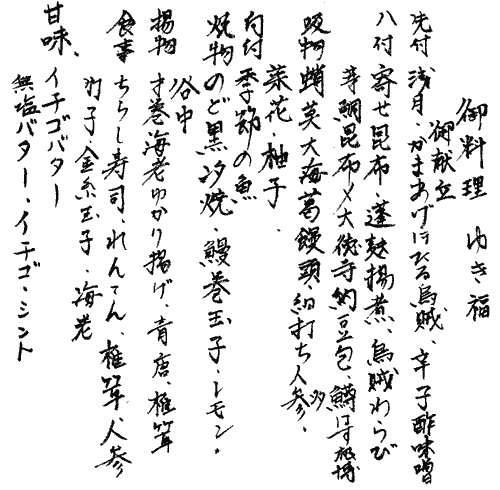 御料理 ゆき福
御献立
先付 浅月、かまあげほたる烏賊、辛子酢味噌
八付 寄せ昆布、蓬麸揚煮、烏賊わらび
芽鯛昆布〆大徳寺納豆包、鱒
吸物 蛸英大海葛饅頭、細打ち人参、
菜花、柚子、
向付 季節の魚
焼物 のど黒汐焼、鰻巻玉子、レモン、
谷中
揚物 才巻海老ゆかり揚げ、青唐、椎茸
食事 ちらし寿司、れんこん、椎茸、人参
竹子、金糸玉子、海老
甘味、イチゴバター
無塩バター、イチゴ、ミント